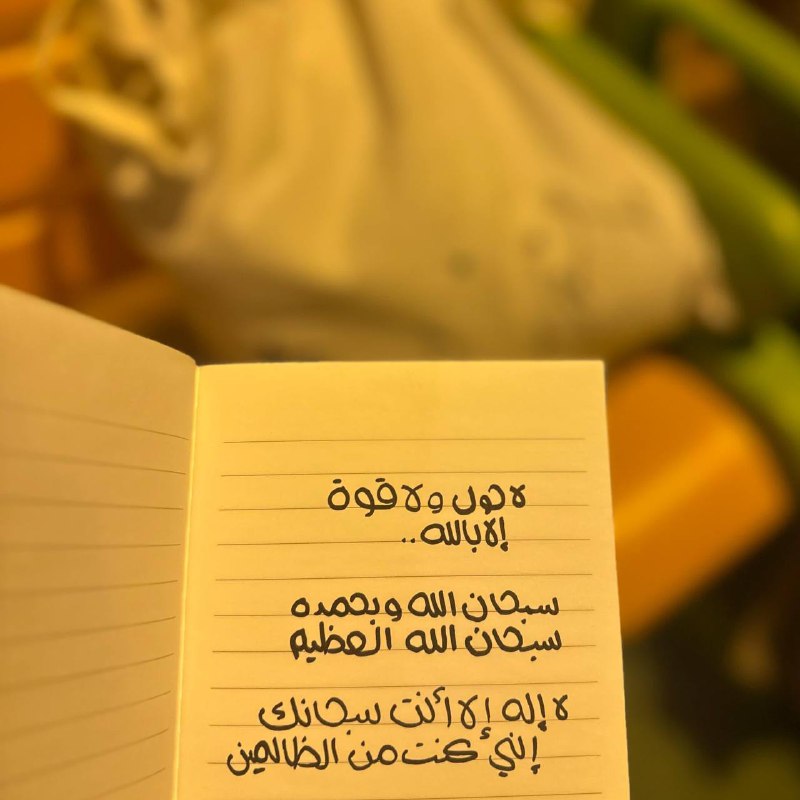 لا حول ولا قوة
إلا بالله..
سبحان الله وبحمده
سبحان الله العظيم
لا إله إلا أنت سبحانك
إنيّ كنت من الظالمين